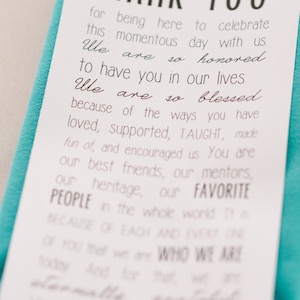 THANK YOU
for being here to celebrate
this momentous day with us
We are so honored
to have you in our lives
We are so blessed
because of the ways you have
loved, supported, TAUGHT, made
fun of, and encouraged us You are
our best friends, our mentors,
our heritage, our FAVORITE
PEOPLE in the whole world It is
BECAUSE OF EACH AND EVERY ONE
of you that we are WHO WE ARE
today. And for that, we are
eternally grateful